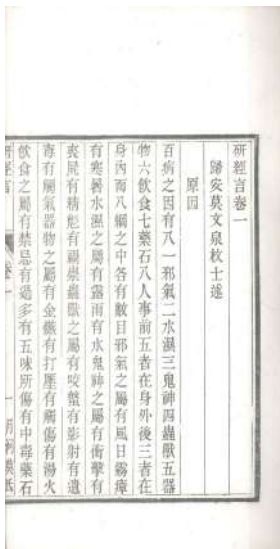 研經言卷一
歸安莫文泉枚士述
原因
百病之因有八一邪氣二水濕三鬼神四蟲獸五器
物六飲食七藥石八人事前五者在身外後三者在
身內而八綱之中各有數目邪氣之屬有風日霧瘴
有寒暑水濕之屬有露雨有水鬼神之屬有衝擊有
喪屍有精魅有禍祟蟲獸之屬有咬螫有影射有遺
毒有觸氣器物之屬有金鏃有打壓有觸傷有湯火
飲食之屬有禁忌有過多有五味所傷有中毒藥石
研經言
卷一
一